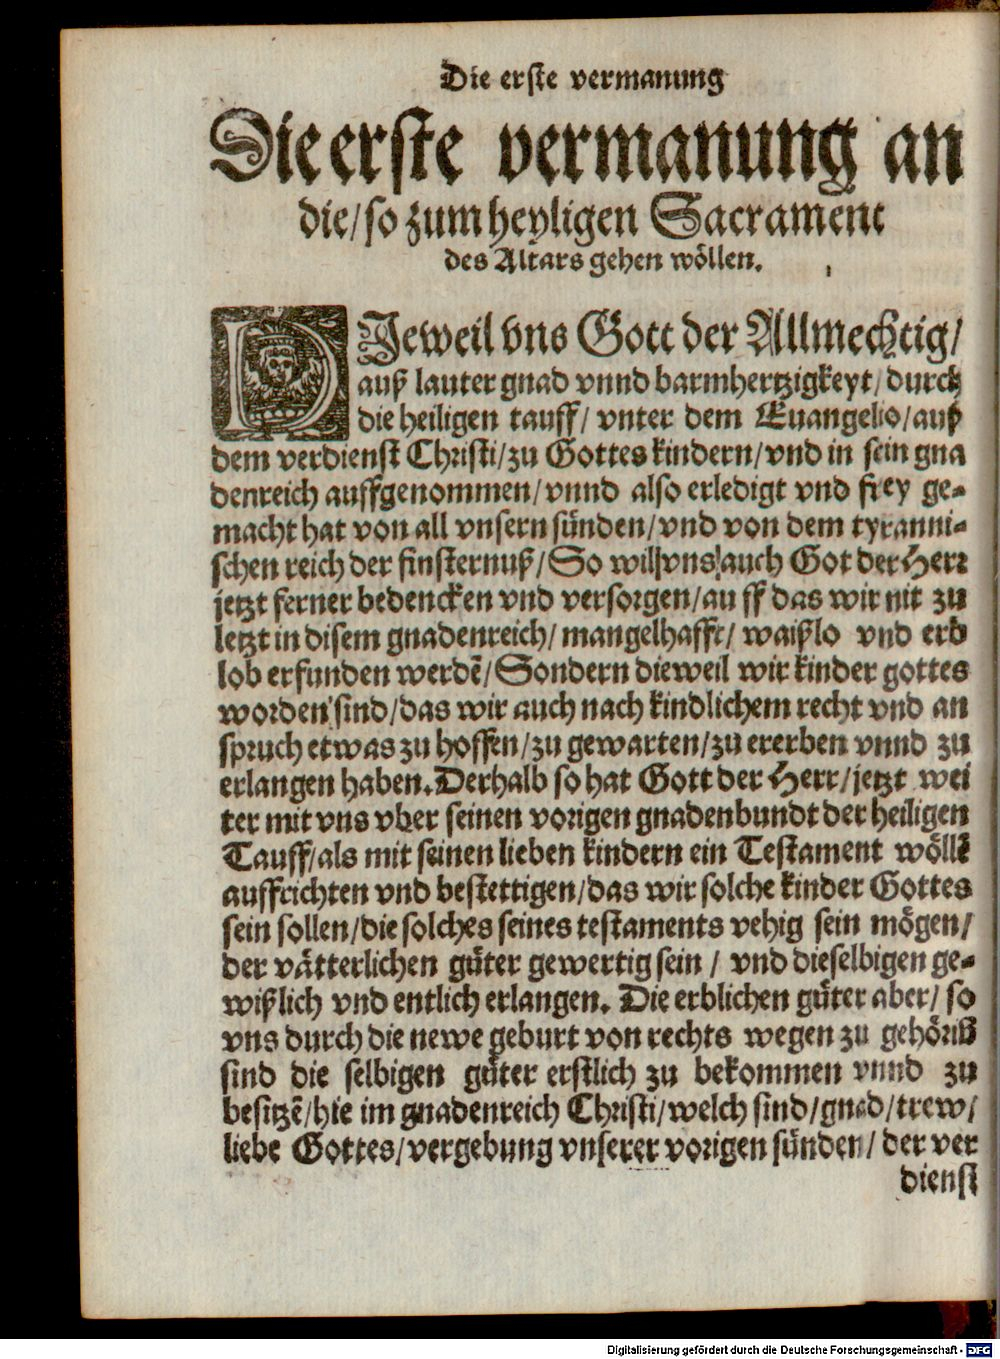 Die erste vermanung
Die erste vermanung an
die/ so zum heyligen Sacrament
des Altars gehen wöllen.
DJeweil vns Gott der Allmechtig/
auß lauter gnad vnnd barmhertzigkeyt/ durch
die heiligen tauff/ vnter dem Euangelio/ auß
dem verdienst Christi/ zu Gottes kindern/ vnd in sein gna
denreich auffgenommen/ vnnd also erledigt vnd frey ge-
macht hat von all vnsern sünden/ vnd von dem tyranni-
schen reich der finsternuß/ So will vns auch Got der Herr
jetzt ferner bedencken vnd versorgen/ au ff das wir nit zu
letzt in disem gnadenreich/ mangelhafft/ waißlo vnd erb
lob erfunden werdẽ/ Sondern dieweil wir kinder gottes
worden sind/ das wir auch nach kindlichem recht vnd an
spruch etwas zu hoffen/ zu gewarten/ zu ererben vnnd zu
erlangen haben. Derhalb so hat Gott der Herr/ jetzt wei
ter mit vns vber seinen vorigen gnadenbundt der heiligen
Tauff/ als mit seinen lieben kindern ein Testament wöllẽ
auffrichten vnd bestettigen/ das wir solche kinder Gottes
sein sollen/ die solches seines testaments vehig sein mögen/
der vätterlichen güter gewertig sein / vnd dieselbigen ge-
wißlich vnd entlich erlangen. Die erblichen güter aber/ so
vns durch die newe geburt von rechts wegen zu gehörẽ
sind die selbigen güter erstlich zu bekommen vnnd zu
besitzẽ/ hie im gnadenreich Christi/ welch sind/ gnad/ trew/
liebe Gottes/ vergebung vnserer vorigen sünden/ der ver
dienst
Digitalisierung gefördert durch die Deutsche Forschungsgemeinschaft - DFG